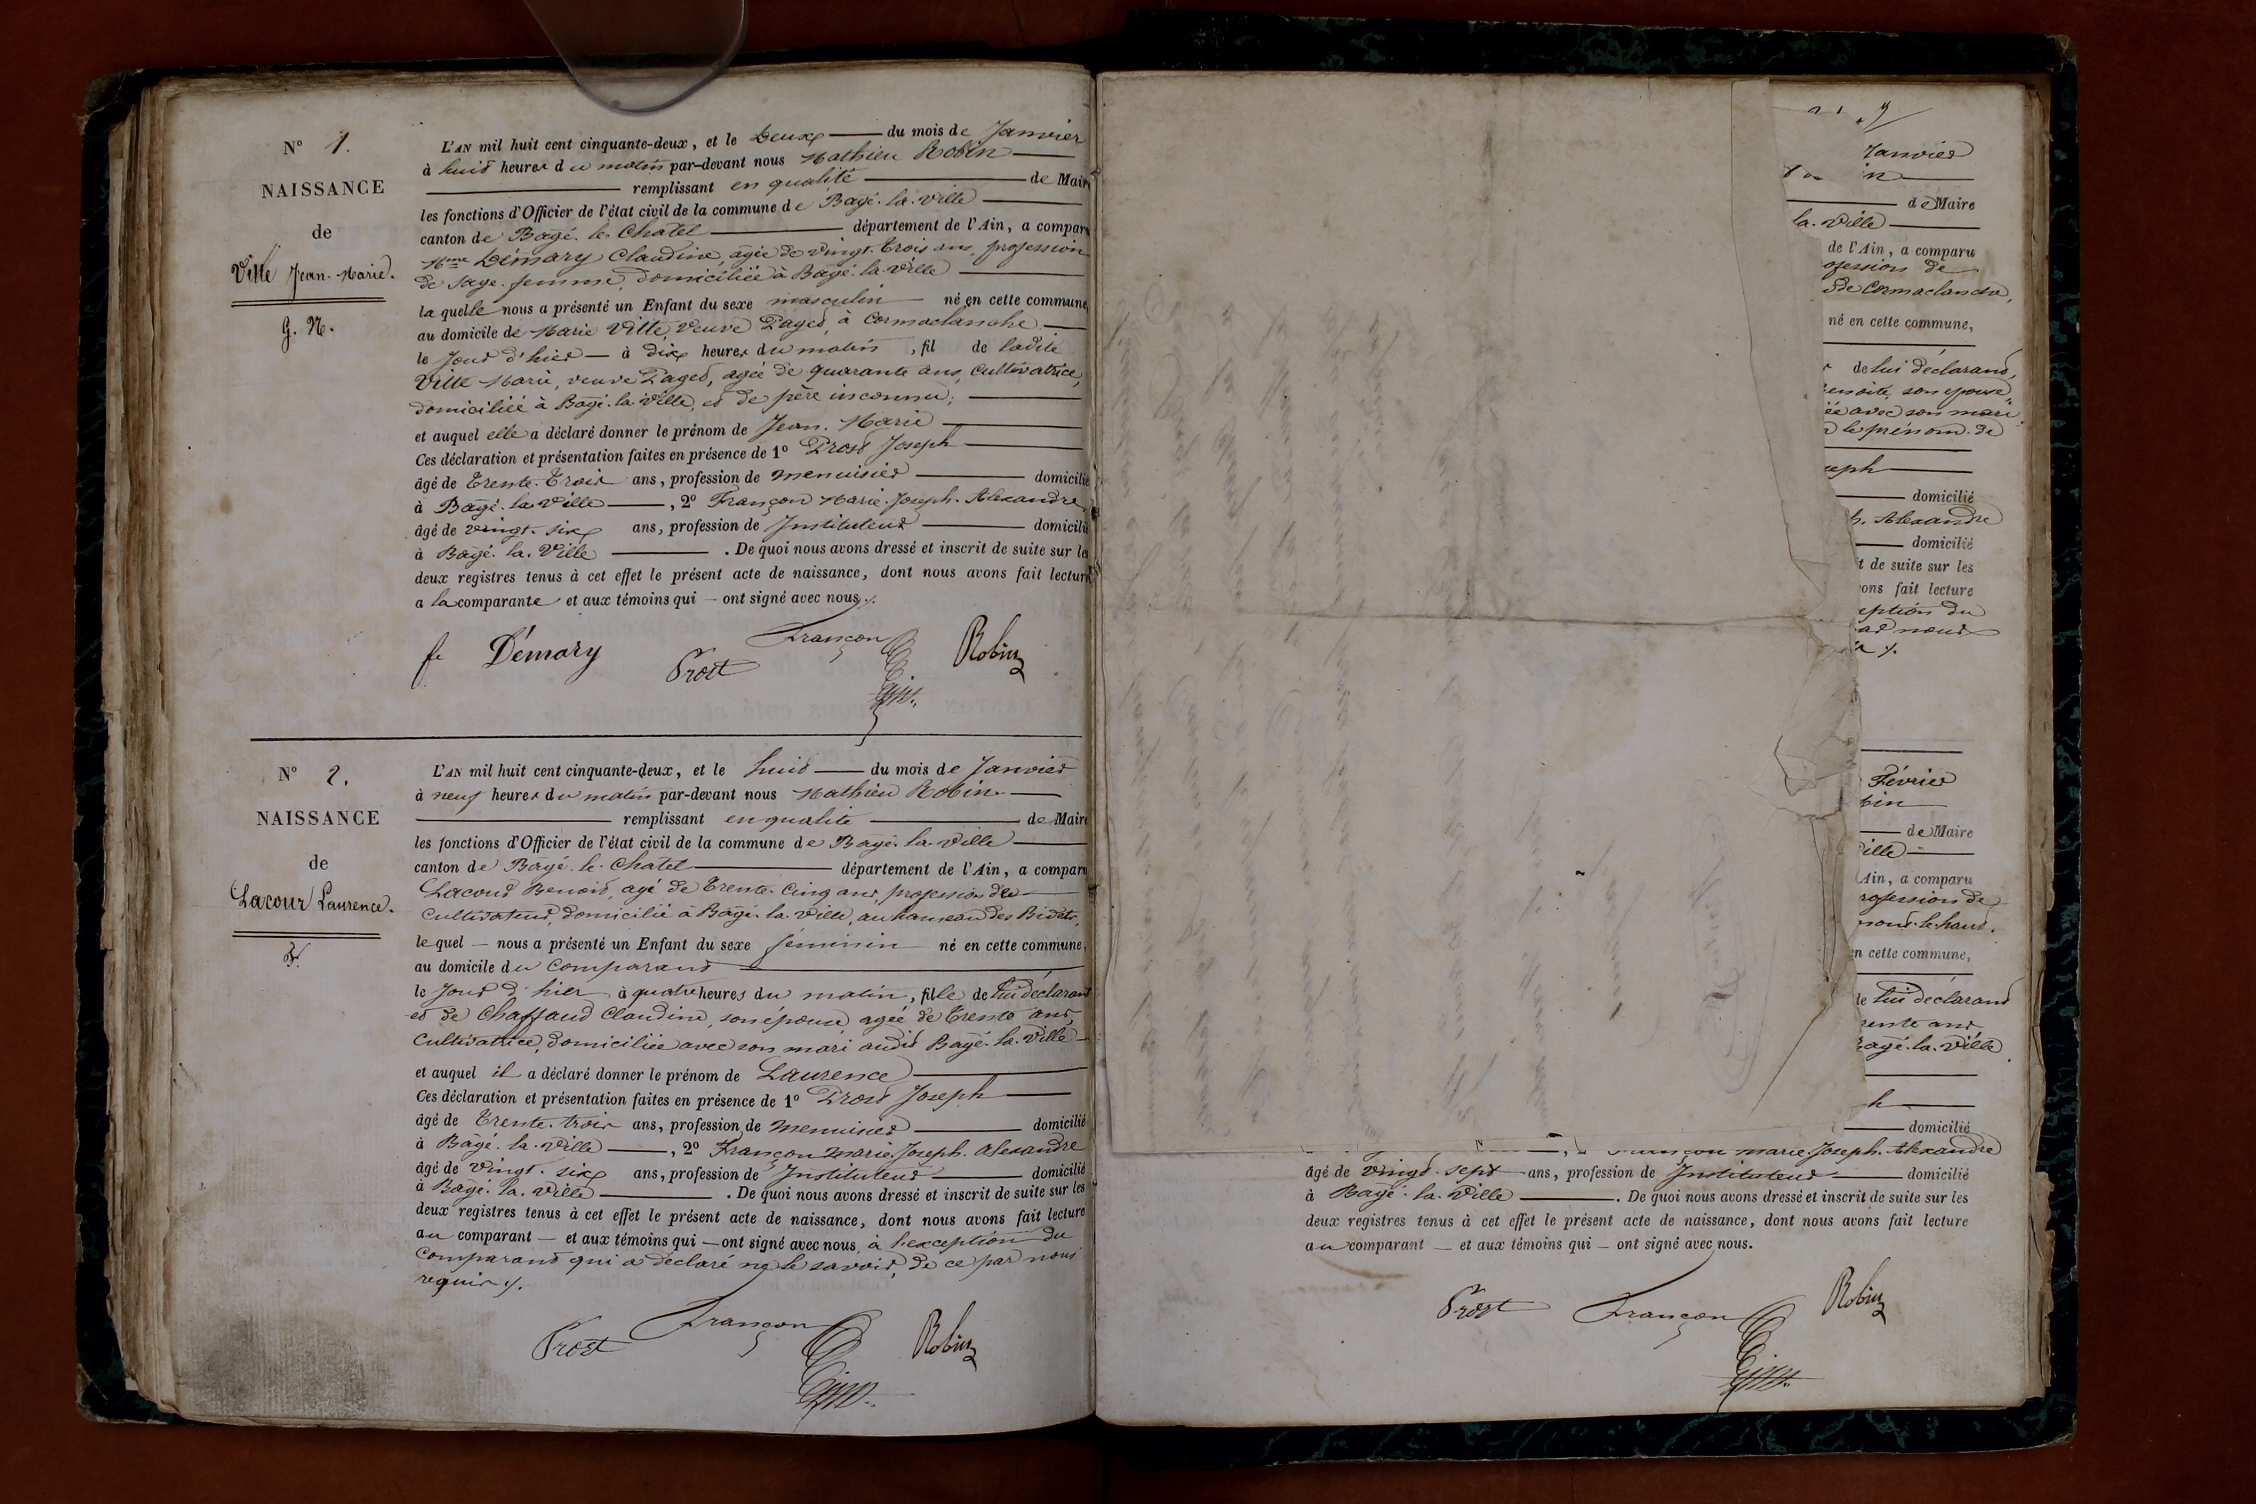 N° 1.
NAISSANCE
de
Ville Jean-Marie.
g. N.
L'AN mil huit cent cinquante-deux, et le Deux du mois de Janvier
à huit heures du matin par-devant nous Mathieu Robin
remplissant en qualité de Maire
les fonctions d'Officier de l'état civil de la commune de Bagé-la-ville
canton de Bagé-le-Chatel département de l'Ain, a comparu
Mme Démary Claudine, agée de vingt-trois ans, profession
de sage-femme, domiciliée à Bagé-la-ville
la quelle nous a présenté un Enfant du sexe masculin né en cette commune,
au domicile de Marie Ville, veuve Paget, à Cormaclanche
le jour d'hier à dix heures du matin, fil de ladite
Ville Marie, veuve Paget, agée de quarante ans, cultivatrice,
domiciliée à Bagé-la-Ville, et de père inconnu;
et auquel elle a déclaré donner le prénom de Jean-Marie
Ces déclaration et présentation faites en présence de 1° Prost Joseph
âgé de trente-trois ans, profession de menuisier domicilié
à Bagé-la-Ville, 2° Françon Marie-Joseph-Alexandre
âgé de vingt-six ans, profession de Instituteur domicilié
à Bagé-la-Ville. De quoi nous avons dressé et inscrit de suite sur les
deux registres tenus à cet effet le présent acte de naissance, dont nous avons fait lecture
a la comparante et aux témoins qui ont signé avec nous.
fe Démary Prost Françon Robin
N° 2.
NAISSANCE
de
Lacour Laurence.
L'AN mil huit cent cinquante-deux, et le huit du mois de Janvier
à neuf heures du matin par-devant nous Mathieu Robin
remplissant en qualité de Maire
les fonctions d'Officier de l'état civil de la commune de Bagé-la-ville
canton de Bagé-le-Chatel département de l'Ain, a comparu
Lacour Benoit, agé de trente-cinq ans, profession de
cultivateur, domicilié à Bagé-la-ville, au hameau des Bidets,
le quel nous a présenté un Enfant du sexe féminin né en cette commune,
au domicile du comparant
le jour d'hier à quatre heures du matin, fille de lui déclarant
et de Chaffaud Claudine, son épouse agée de trente ans,
cultivatrice, domiciliée avec son mari audit Bagé-la-Ville
et auquel il a déclaré donner le prénom de Laurence
Ces déclaration et présentation faites en présence de 1° Prost Joseph
âgé de trente-trois ans, profession de menuisier domicilié
à Bagé-la-ville, 2° Françon marie-Joseph-alexandre
âgé de vingt-six ans, profession de Instituteur domicilié
à Bagé-la-ville. De quoi nous avons dressé et inscrit de suite sur les
deux registres tenus à cet effet le présent acte de naissance, dont nous avons fait lecture
au comparant et aux témoins qui ont signé avec nous, à l'exception du
comparant qui a déclaré ne le savoir, de ce par nous
requis.
Prost Françon Robin
Janvier
de Maire
la-Ville
de l'Ain, a comparu
ofession de
de Cormaclanche,
né en cette commune,
de lui déclarant,
enoite, son épouse
ée avec son mari
le prénom de
eph
domicilié
h. Alexandre
domicilié
t de suite sur les
ons fait lecture
eption du
ar nous
Février
bin
de Maire
ille
Ain, a comparu
rofession de
en cette commune,
le lui déclarant
rente ans
agé-la-ville
h
domicilié
marie-Joseph-Alexandre
âgé de vingt-sept ans, profession de Instituteur domicilié
à Bagé-la-Ville. De quoi nous avons dressé et inscrit de suite sur les
deux registres tenus à cet effet le présent acte de naissance, dont nous avons fait lecture
au comparant et aux témoins qui ont signé avec nous.
Prost Françon Robin